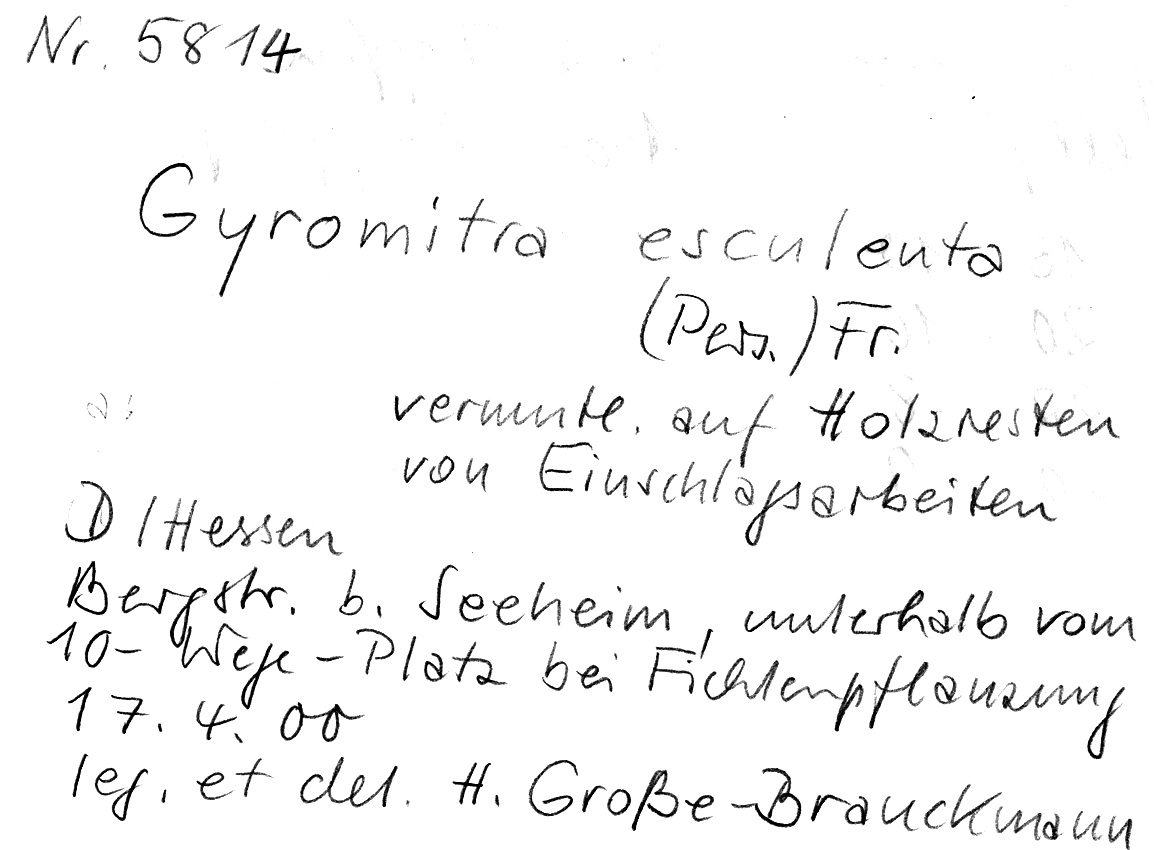 Nr. 5814
Gyromitra esculenta
(Pers.) Fr.
vermutl. auf Holzresten
von Einschlagsarbeiten
D/Hessen
Bergstr. b. Seeheim, unterhalb vom
10-Wege-Platz bei Fichtenpflanzung
17.4.00
leg. et det. H. Große-Brauckmann